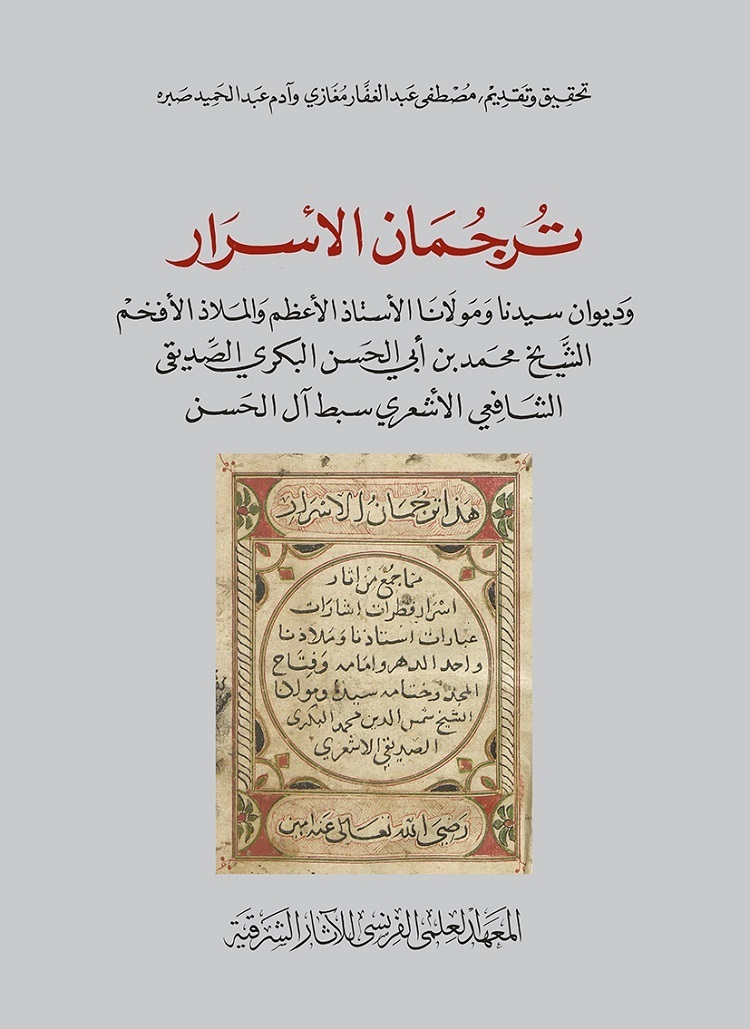 تحقيق وتقديم، مصطفى عبد الغفَّار مغازي وآدم عبد الحميد صبره
تُرجُمَان الأسرَار
وَديوان سيدنا وَمَولَانَا الأستاذ الأعظم وَالمَلاذ الأفخم
الشَّيخ محمد بن أبي الحَسن البكري الصِّديقي
الشافعي الأشعري سبط آل الحَسن
هذا ترجمانُ الاسْرَار
مما جمع من اثار
اسرار قطرات اشارات
عبارات استاذنا وملاذنا
واحد الدهر وامامه وفتاح
المجد وختامه سيدنا ومولانا
الشيخ شمس الدين محمد البكرى
الصديقي الاشعري
رضي الله تعالى عنه امين
المعهد العلمي الفرنسي للآثار الشرقية